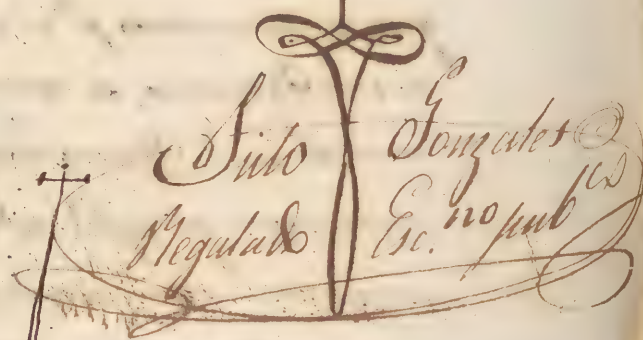 Julo Gonzales
Regulado Esc.no pubco